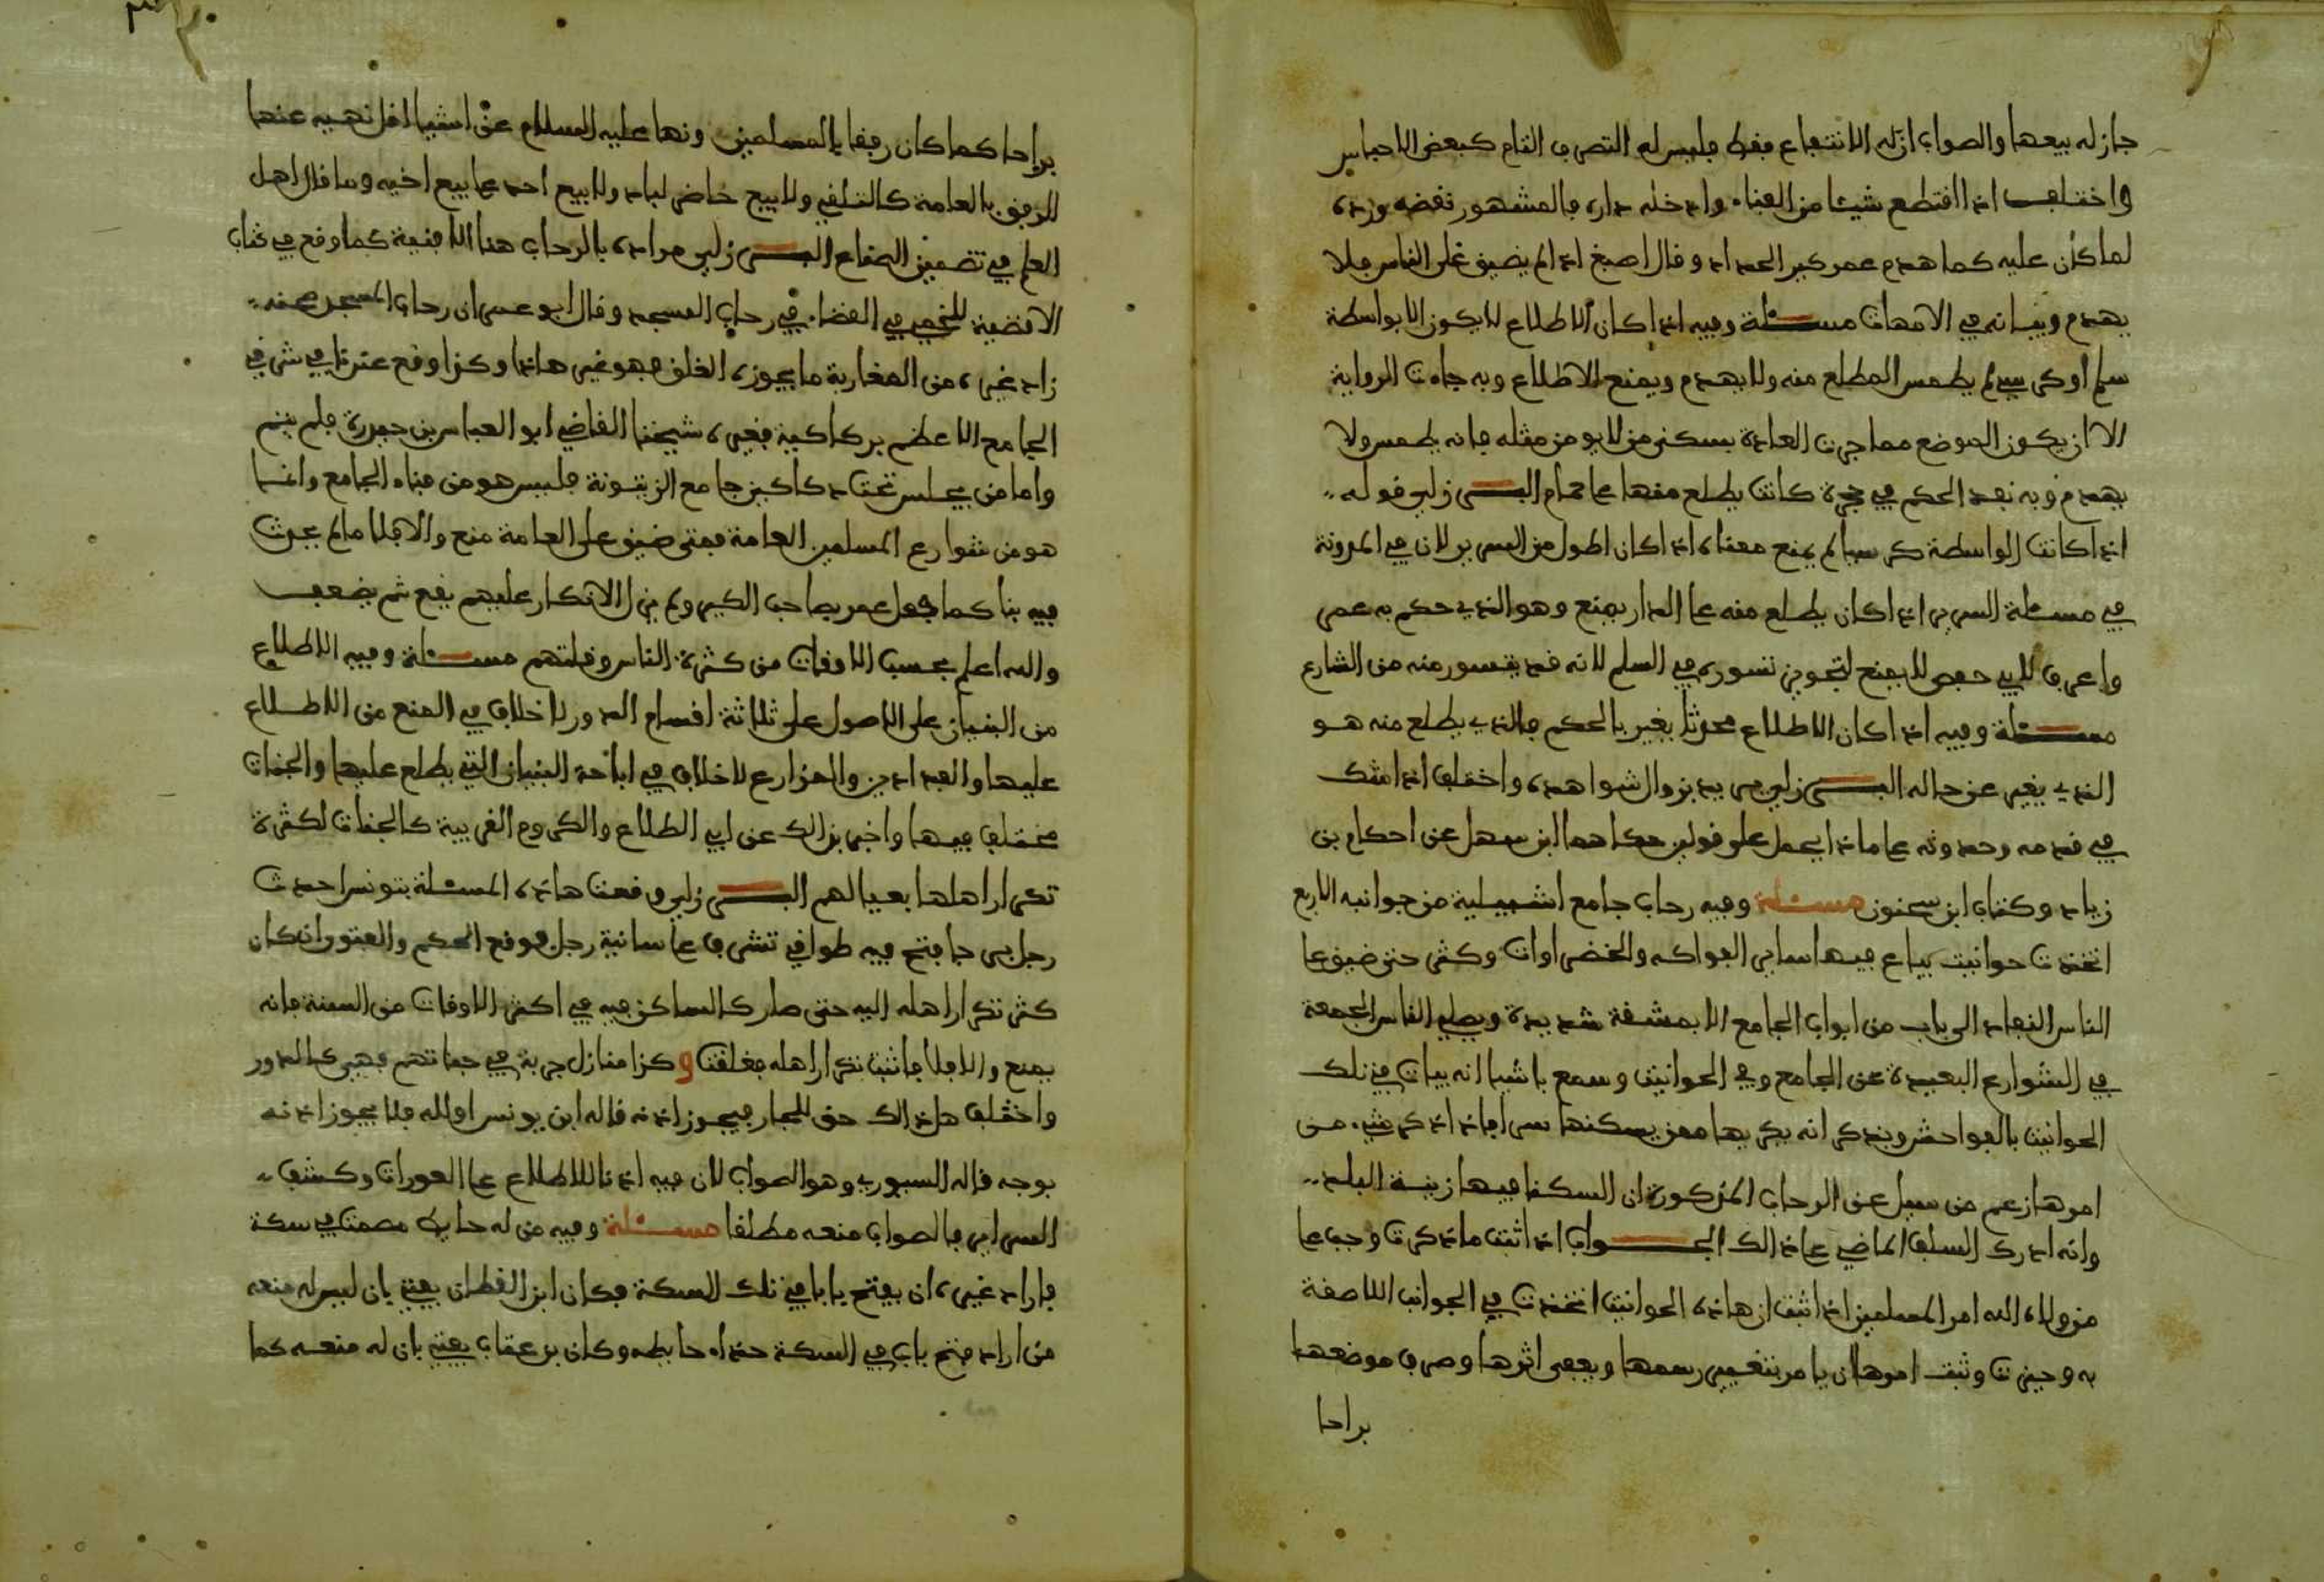 جاز له بيعها والصواب ان له الانتفاع فقط فليس له التصرف التام كبعض الاحباس
واختلف اذا اقتطع شيئا من الفناء وادخله داره فالمشهور نقضه ورده
لما كان عليه كما هدم عمر كير الحداد وقال اصبغ اذا لم يضيق على الناس فلا
يهدم وبيانه في الامهات مسئلة وفيه اذا كان الاطلاع لا يكون الا بواسطة
سلم او كرسي لم يطمس المطلع منه ولا يهدم ويمنع الاطلاع وبه جاءت الرواية
الا ان يكون الموضع مما جرت العادة بسكنى من لا يومن مثله فانه يطمس ولا
يهدم وبه نفد الحكم في حجرة كانت يطلع منها على حمام البرزلي قوله
اذا كانت الواسطة كرسيا لم يمنع معناه اذا كان اطول من السرير لان في المدونة
في مسئلة السرير اذا كان يطلع منه على الدار يمنع وهو الذي حكم به عمر
واعرف لابي حفص لا يمنع لتجويز تسوره في السلم لانه قد يتسور منه من الشارع
مسئلة وفيه اذا كان الاطلاع محدثا يغير بالحكم فالذي يطلع منه هو
الذي يغير عن حاله البرزلي يريد بزوال شواهده واختلف اذا شك
في قدمه وحدوثه على ماذا يحمل على قولين حكاهما ابن سهل عن احكام بن
زياد وكتاب ابن سحنون مسئلة وفيه رحاب جامع اشبيلية من جوانبه الاربع
اتخذت حوانيت يباع فيها ساير الفواكه والخضراوات وكثر حتى ضيق على
الناس النفاد الى باب من ابواب الجامع الا بمشقة شديدة ويصلي الناس الجمعة
في الشوارع البعيدة عن الجامع وفي الحوانيت وسمع باشيا انه يبات في تلك
الحوانيت بالفواحش ويذكر انه يكريها ممن يسكنها سرا فاذا ذكر شيء من
امرها زعم من سيل عن الرحاب المذكورة ان السكنا فيها زينة البلد
وانه ادرك السلف الماضي على ذالك الجواب اذا ثبت ما ذكرت وجب على
من ولاه الله امر المسلمين اذا ثبت ان هاذه الحوانيت اتخذت في الجوانب اللاصقة
به وحيزت وثبت امرها ان يامر بتغيير رسمها ويعفى اثرها وصرف موضعها
براحا
براحا كما كان رفقا بالمسلمين ونها عليه السلام عن اشيا اقل نهيه عنها
للرفق بالعامة كالتلقي ولا يبيع حاضر لباد ولا يبيع احد على بيع اخيه وما قال اهل
العلم في تضمين الصناع البرزلي مراده بالرحاب هنا الافنية كما وقع في كتاب
الاقضية للخمي في القضاء في رحاب المسجد وقال ابو عمران رحاب المسجد صحنه
زاد غيره من المغاربة ما يحوزه الغلق فهو غير هاذا وكذا وقع عندنا في شرقي
الجامع الاعظم بدكاكينه فغيره شيخنا القاضي ابو العباس بن حيدرة فلم يتم
واما من يجلس تحت دكاكين جامع الزيتونة فليس هو من فناء الجامع وانما
هو من شوارع المسلمين العامة فمتى ضيق على العامة منع والا فلا ما لم يحدث
فيه بنا كما فعل عمر بصاحب الكير ولم يزل الانكار عليهم يقع ثم يضعف
والله اعلم بحسب الاوقات من كثرة الناس وقلتهم مسئلة وفيه الاطلاع
من البنيان على الاصول على ثلاثة اقسام الدور لا خلاف في المنع من الاطلاع
عليها والفدادين والمزارع لا خلاف في اباحة البنيان التي يطلع عليها والجنات
مختلف فيها واخبر بذالك عن ابي الطلاع والكروم القريبة كالجنات لكثرة
تكرار اهلها بعيالهم البرزلي وقعت هاذه المسئلة بتونس احدث
رجل برجا فتح فيه طواقي تشرف على سانية رجل فوقع الحكم والفتور ان كان
كثر تكرار اهله اليه حتى صار كالساكن فيه في اكثر الاوقات من السنة فانه
يمنع والا فلا فاثبت تكرار اهله فغلقت وكذا منازل جربة في جناتهم فهي كالدور
واختلف هل ذالك حق للجار فيجوز اذنه قاله ابن يونس او لله فلا يجوز اذنه
بوجه قاله السيوري وهو الصواب لان فيه اذنا للاطلاع على العورات وكشف
السراير فالصواب منعه مطلقا مسئلة وفيه من له حايط مصمت في سكة
فاراد غيره ان يفتح بابا في تلك السكة فكان ابن القطان يفتي بان ليس له منعه
من اراد فتح باب في السكة حذاء حايطه وكان بن عتاب يفتي بان له منعه كما